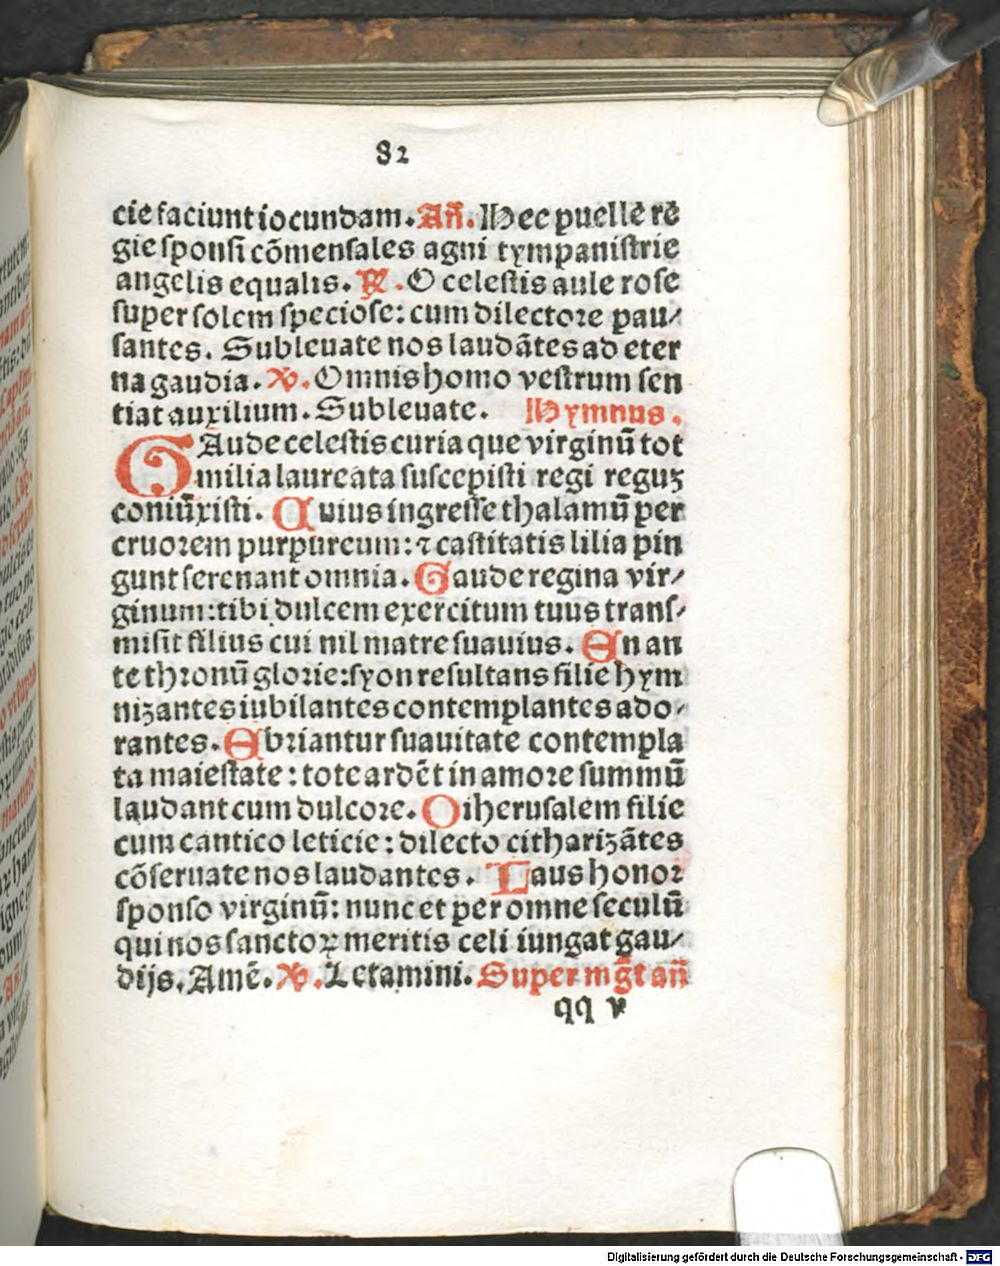 82
cie faciunt iocundam. Añ. Hec puelle rē
gie sponsi cõmensales agni tympanistrie
angelis equalis. ℟. O celestis aule rose
super solem speciose: cum dilectore pau⸗
santes. Subleuate nos laudãtes ad eter
na gaudia. ℣. Omnis homo vestrum sen
tiat auxilium. Subleuate. Hymnus.
GAude celestis curia que virginũ tot
milia laureata suscepisti regi reguʒ
coniũxisti. Cuius ingresse thalamũ per
cruorem purpureum: ⁊ castitatis lilia pin
gunt serenant omnia. Gaude regina vir⸗
ginum: tibi dulcem exercitum tuus trans⸗
misit filius cui nil matre suauius. En an
te thronũ glorie: syon resultans filie hym
nizantes iubilantes contemplantes ado⸗
rantes. Ebriantur suauitate contempla
ta maiestate: tote ardẽt in amore summũ
laudant cum dulcore. O iherusalem filie
cum cantico leticie: dilecto citharizãtes
cõseruate nos laudantes. Laus honor
sponso virginũ: nunc et per omne seculũ
qui nos sanctoꝝ meritis celi iungat gau⸗
dijs. Amẽ. ℣. Letamini. Super mg̃t añ
qq v
Digitalisierung gefördert durch die Deutsche Forschungsgemeinschaft - DFG